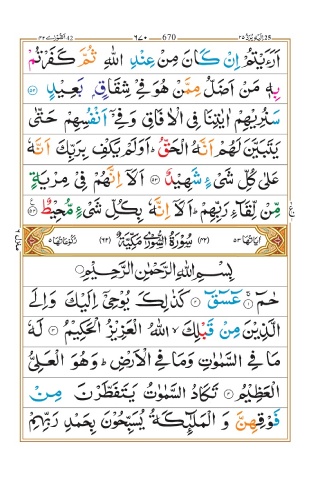 الشورى ٤٢ ٦٧٠ 670 اليه يرد ٢٥
اَرَءَيْتُمْ اِنْ كَانَ مِنْ عِنْدِ اللّٰهِ ثُمَّ كَفَرْتُمْ
بِهٖ مَنْ اَضَلُّ مِمَّنْ هُوَ فِيْ شِقَاقٍۭ بَعِيْدٍ ﴿۵۲﴾
سَنُرِيْهِمْ اٰيٰتِنَا فِي الْاٰفَاقِ وَفِيْٓ اَنْفُسِهِمْ حَتّٰى
يَتَبَيَّنَ لَهُمْ اَنَّهُ الْحَقُّ ؕ اَوَلَمْ يَكْفِ بِرَبِّكَ اَنَّهٗ
عَلٰى كُلِّ شَيْءٍ شَهِيْدٌ ﴿۵۳﴾ اَلَاۤ اِنَّهُمْ فِيْ مِرْيَةٍ
مِّنْ لِّقَآءِ رَبِّهِمْ ؕ اَلَاۤ اِنَّهٗ بِكُلِّ شَيْءٍ مُّحِيْطٌ ﴿۵۴﴾
اٰيَاتُهَا ۵۳ (۴۲) سُوْرَةُ الشُّوْرٰى مَكِّيَّةٌ (۶۲) رُكُوْعَاتُهَا ۵
بِسْمِ اللّٰهِ الرَّحْمٰنِ الرَّحِيْمِ
حٰمٓ ﴿۱﴾ عٓسٓقٓ ﴿۲﴾ كَذٰلِكَ يُوْحِيْۤ اِلَيْكَ وَاِلَى
الَّذِيْنَ مِنْ قَبْلِكَ ۙ اللّٰهُ الْعَزِيْزُ الْحَكِيْمُ ﴿۳﴾ لَهٗ
مَا فِي السَّمٰوٰتِ وَمَا فِي الْاَرْضِ ؕ وَهُوَ الْعَلِيُّ
الْعَظِيْمُ ﴿۴﴾ تَكَادُ السَّمٰوٰتُ يَتَفَطَّرْنَ مِنْ
فَوْقِهِنَّ وَ الْمَلٰٓئِكَةُ يُسَبِّحُوْنَ بِحَمْدِ رَبِّهِمْ